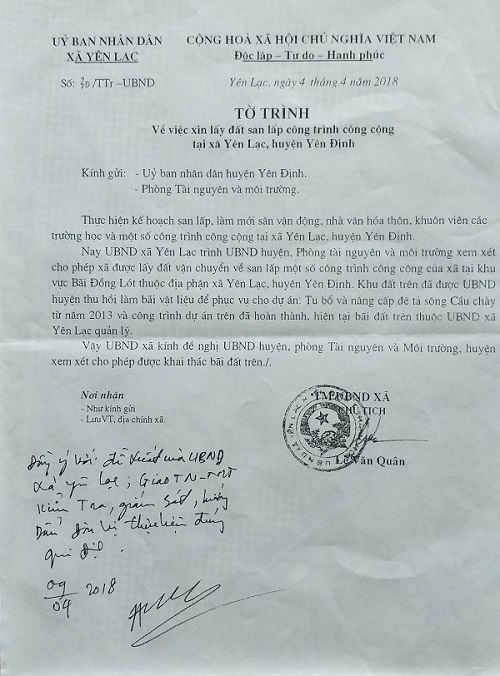 UỶ BAN NHÂN DÂN
XÃ YÊN LẠC
CỘNG HOÀ XÃ HỘI CHỦ NGHĨA VIỆT NAM
Độc lập – Tự do – Hạnh phúc
Số: /TTr –UBND
Yên Lạc, ngày 4 tháng 4 năm 2018
TỜ TRÌNH
Về việc xin lấy đất san lấp công trình công cộng
tại xã Yên Lạc, huyện Yên Định
Kính gửi: - Uỷ ban nhân dân huyện Yên Định.
- Phòng Tài nguyên và môi trường.
Thực hiện kế hoạch san lấp, làm mới sân vận động, nhà văn hóa thôn, khuôn viên các
trường học và một số công trình công cộng tại xã Yên Lạc, huyện Yên Định.
Nay UBND xã Yên Lạc trình UBND huyện, Phòng tài nguyên và môi trường xem xét
cho phép xã được lấy đất vận chuyển về san lấp một số công trình công cộng của xã tại khu
vực Bãi Đồng Lót thuộc địa phận xã Yên Lạc, huyện Yên Định. Khu đất trên đã được UBND
huyện thu hồi làm bãi vật liệu để phục vụ cho dự án: Tu bổ và nâng cấp đê tả sông Cầu chày
từ năm 2013 và công trình dự án trên đã hoàn thành, hiện tại bãi đất trên thuộc UBND xã
Yên Lạc quản lý.
Vậy UBND xã kính đề nghị UBND huyện, phòng Tài nguyên và Môi trường, huyện
xem xét cho phép được khai thác bãi đất trên./.
Nơi nhận
- Như kính gửi
- Lưu VT, địa chính xã.
TM UBND XÃ
CHỦ TỊCH
Lê Văn Quân
Đồng ý với đề xuất của UBND
xã Yên Lạc; Giao TN-MT
kiểm Tra, giám sát, hướng
Dẫn đơn vị thực hiện đúng
qui định.
09
04 2018